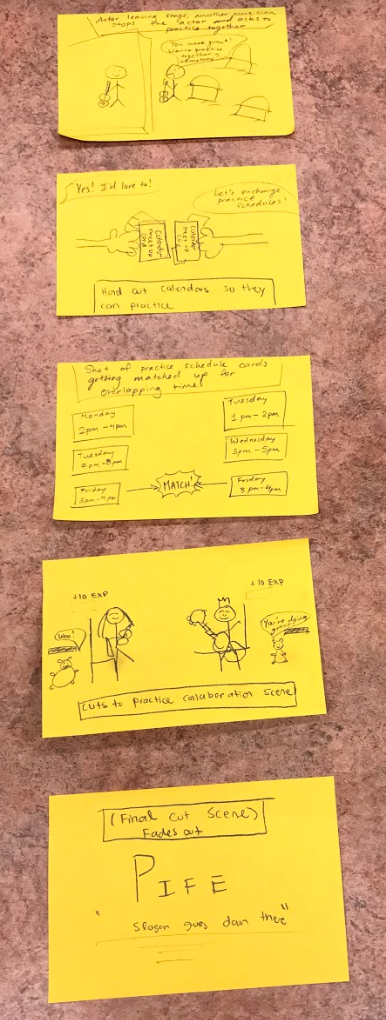 Actor leaving stage, another musician
stops the actor and asks to
practice together
You were great!
Wanna practice
together
sometime
Yes! I'd love to!
Let's exchange
practice
schedules!
Calendar
meet up
Calendar
meet up
Hand out calendars so they
can practice
Shot of practice schedule cards
getting matched up for
overlapping time!
Monday
2pm - 4pm
Tuesday
1pm - 2pm
Tuesday
Wednesday
3pm - 5pm
Friday
3pm - 4pm
MATCH!
Friday
3pm - 4pm
+10 EXP
+10 EXP
Woo!
You're doing
great!
Cuts to practice calaboration scene
(Final cut scene)
Fades out
PIFE
" Slogan goes dan there "